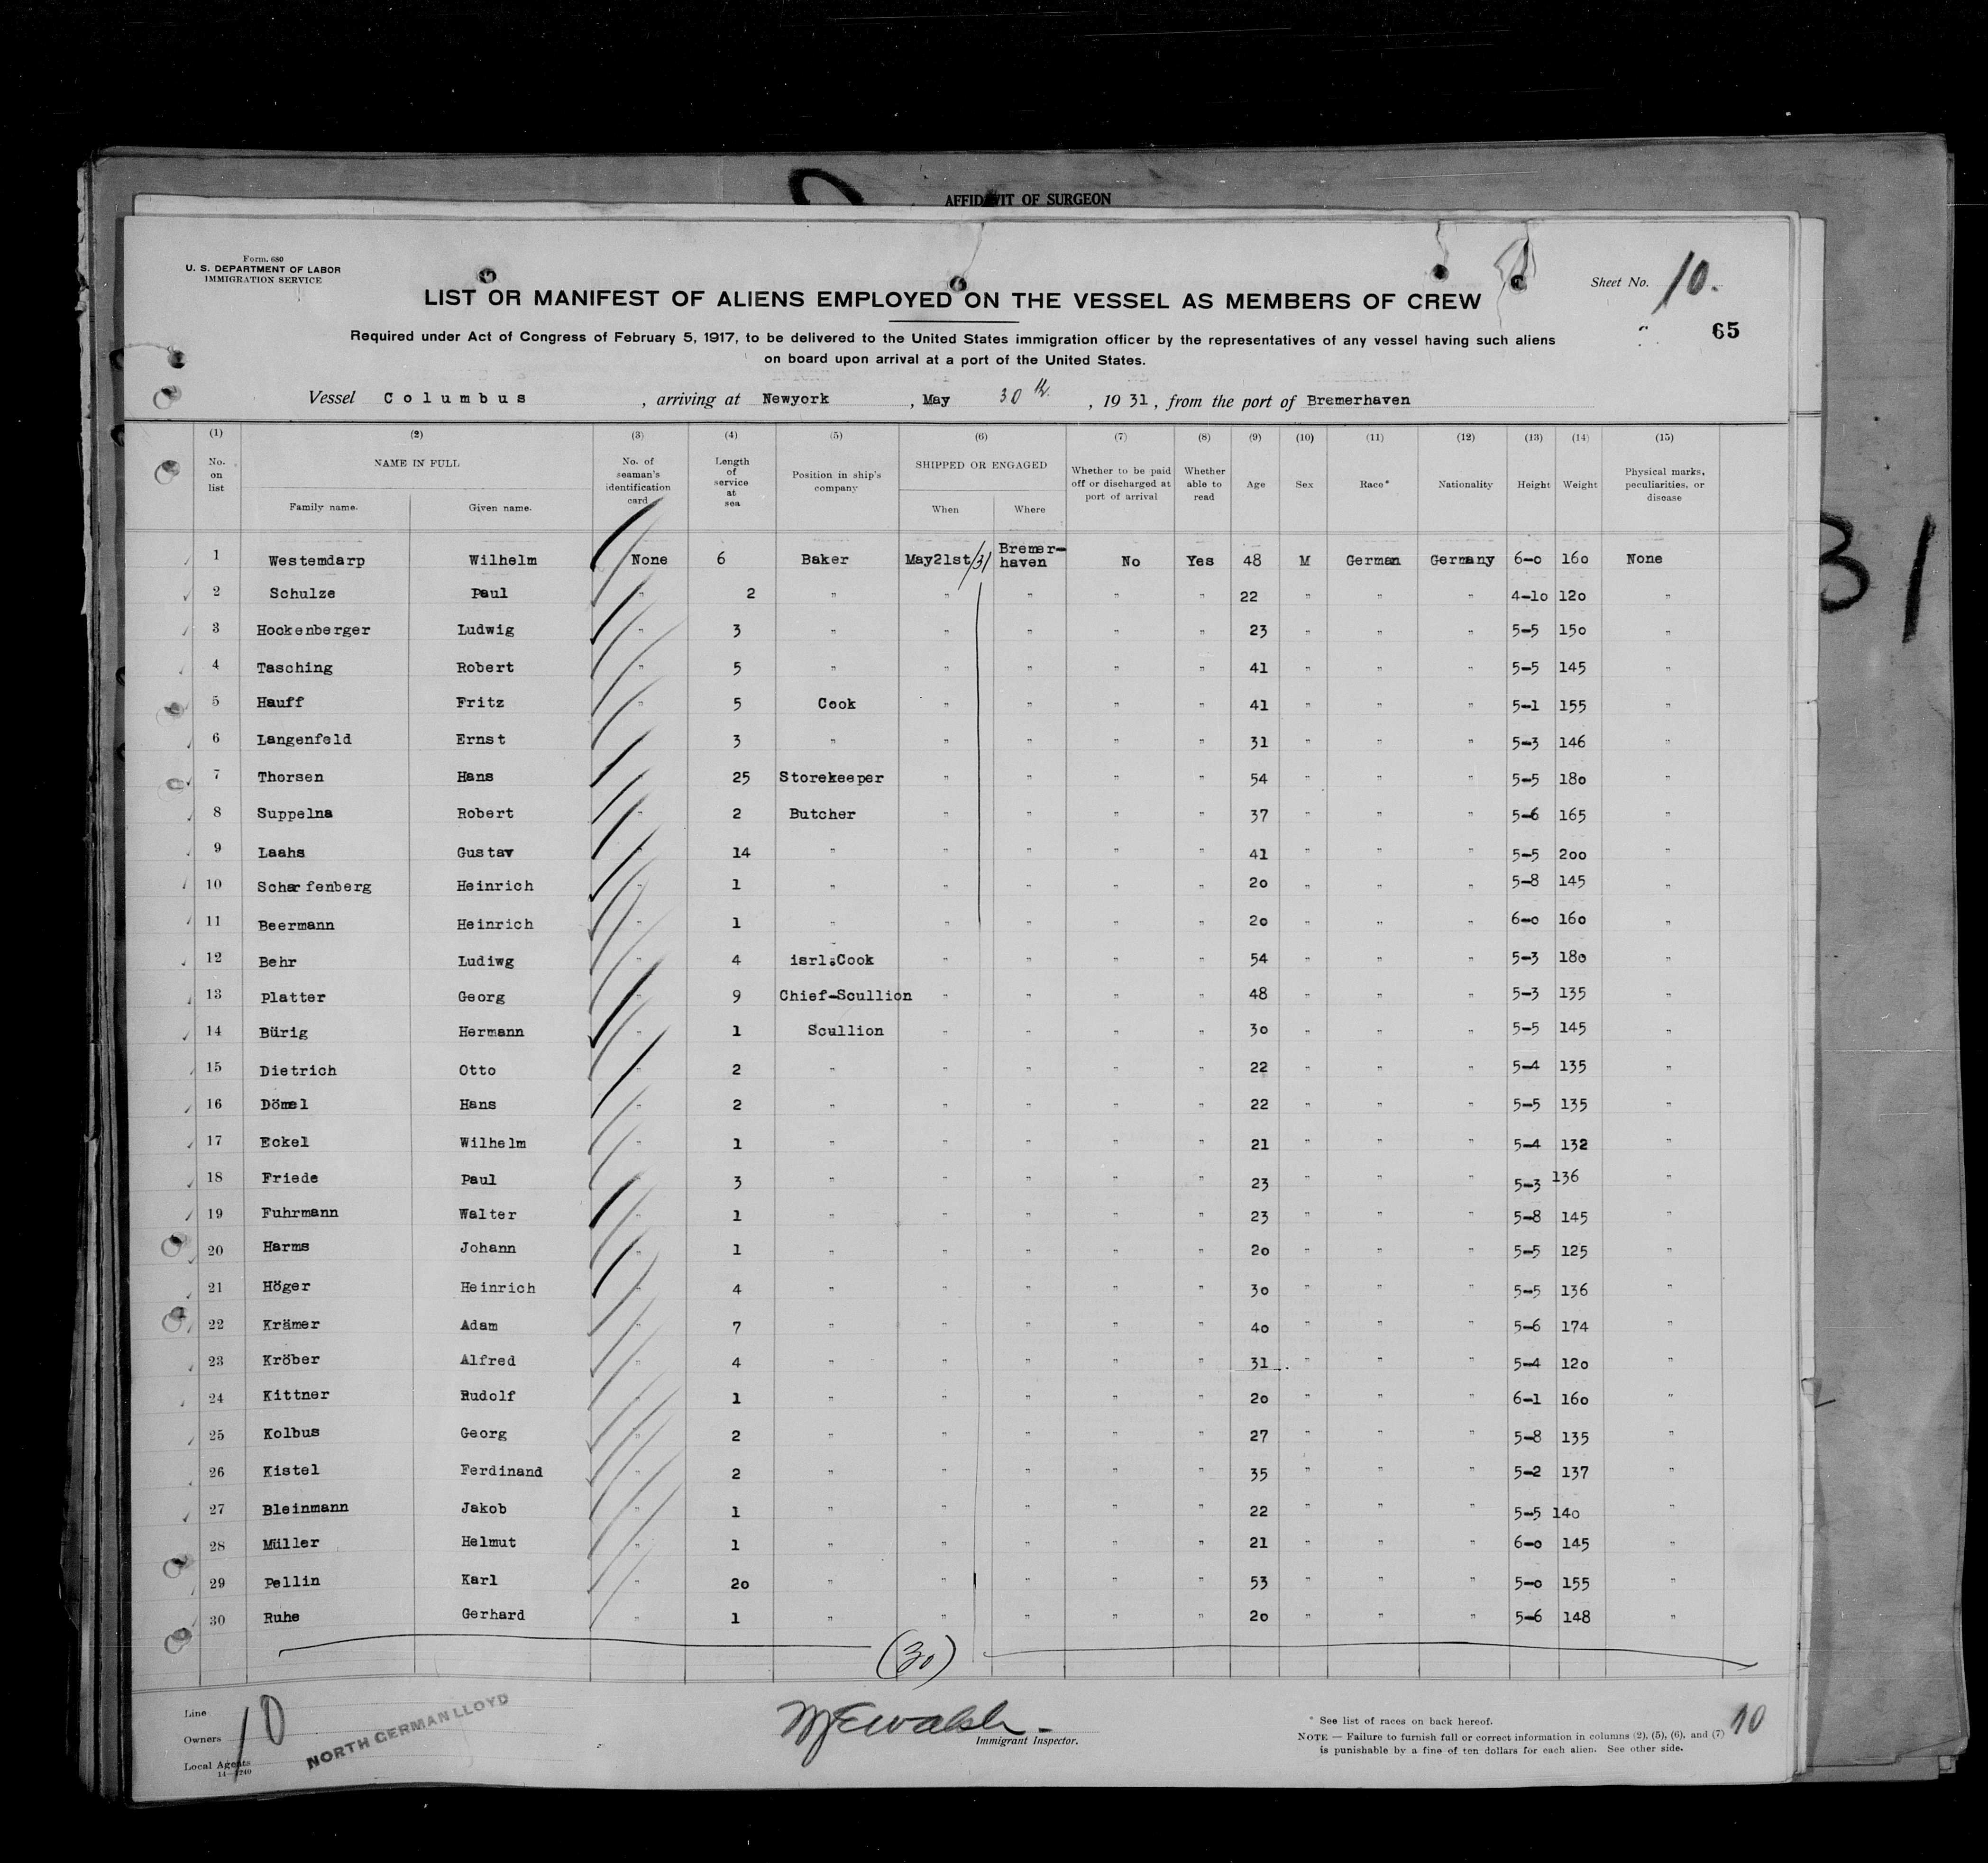 AFFIDAVIT OF SURGEON
Form. 680
U. S. DEPARTMENT OF LABOR
IMMIGRATION SERVICE
Sheet No. 10.
LIST OR MANIFEST OF ALIENS EMPLOYED ON THE VESSEL AS MEMBERS OF CREW
65
Required under Act of Congress of February 5, 1917, to be delivered to the United States immigration officer by the representatives of any vessel having such aliens
on board upon arrival at a port of the United States.
Vessel Columbus, arriving at Newyork, May 30th, 1931, from the port of Bremerhaven
(1) (2) (3) (4) (5) (6) (7) (8) (9) (10) (11) (12) (13) (14) (15)
No. on list NAME IN FULL Family name. Given name. No. of seaman's identification card Length of service at sea Position in ship's company SHIPPED OR ENGAGED When Where Whether to be paid off or discharged at port of arrival Whether able to read Age Sex Race* Nationality Height Weight Physical marks, peculiarities, or disease
1 Westemdarp Wilhelm None 6 Baker May21st/31 Bremer-haven No Yes 48 M German Germany 6-0 160 None
2 Schulze Paul " 2 " " " " " 22 " " " 4-10 120 "
3 Hockenberger Ludwig " 3 " " " " " 23 " " " 5-5 150 "
4 Tasching Robert " 5 " " " " " 41 " " " 5-5 145 "
5 Hauff Fritz " 5 Cook " " " " 41 " " " 5-1 155 "
6 Langenfeld Ernst " 3 " " " " " 31 " " " 5-3 146 "
7 Thorsen Hans " 25 Storekeeper " " " " 54 " " " 5-5 180 "
8 Suppelna Robert " 2 Butcher " " " " 37 " " " 5-6 165 "
9 Laahs Gustav " 14 " " " " " 41 " " " 5-5 200 "
10 Scharfenberg Heinrich " 1 " " " " " 20 " " " 5-8 145 "
11 Beermann Heinrich " 1 " " " " " 20 " " " 6-0 160 "
12 Behr Ludiwg " 4 isrl.Cook " " " " 54 " " " 5-3 180 "
13 Platter Georg " 9 Chief-Scullion " " " " 48 " " " 5-3 135 "
14 Bürig Hermann " 1 Scullion " " " " 30 " " " 5-5 145 "
15 Dietrich Otto " 2 " " " " " 22 " " " 5-4 135 "
16 Dömel Hans " 2 " " " " " 22 " " " 5-5 135 "
17 Eckel Wilhelm " 1 " " " " " 21 " " " 5-4 132 "
18 Friede Paul " 3 " " " " " 23 " " " 5-3 136 "
19 Fuhrmann Walter " 1 " " " " " 23 " " " 5-8 145 "
20 Harms Johann " 1 " " " " " 20 " " " 5-5 125 "
21 Höger Heinrich " 4 " " " " " 30 " " " 5-5 136 "
22 Krämer Adam " 7 " " " " " 40 " " " 5-6 174 "
23 Kröber Alfred " 4 " " " " " 31 " " " 5-4 120 "
24 Kittner Rudolf " 1 " " " " " 20 " " " 6-1 160 "
25 Kolbus Georg " 2 " " " " " 27 " " " 5-8 135 "
26 Kistel Ferdinand " 2 " " " " " 35 " " " 5-2 137 "
27 Bleinmann Jakob " 1 " " " " " 22 " " " 5-5 140 "
28 Müller Helmut " 1 " " " " " 21 " " " 6-0 145 "
29 Pellin Karl " 20 " " " " " 53 " " " 5-0 155 "
30 Ruhe Gerhard " 1 " " " " " 20 " " " 5-6 148 "
(30)
Line
Owners
Local Agents
14-1240
10
NORTH GERMAN LLOYD
Immigrant Inspector.
* See list of races on back hereof.
NOTE — Failure to furnish full or correct information in columns (2), (5), (6), and (7)
is punishable by a fine of ten dollars for each alien. See other side.
10
31